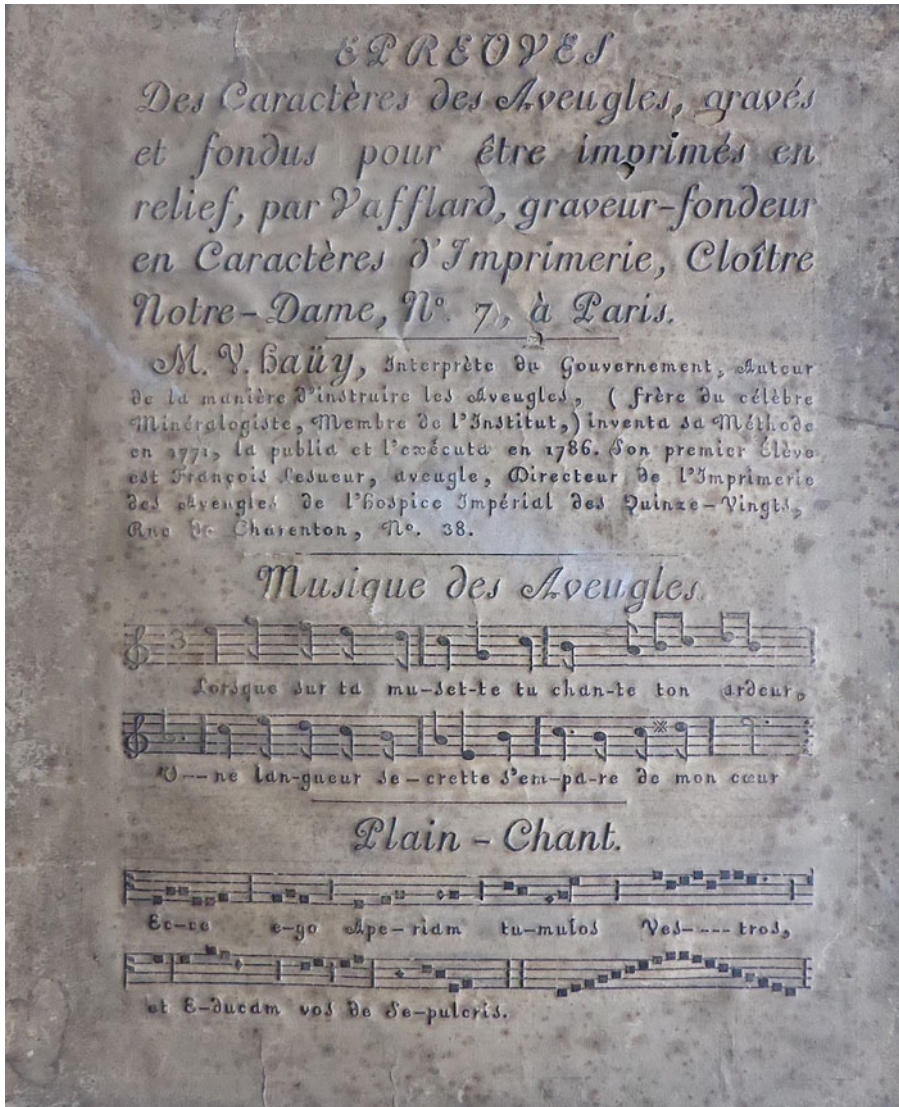 EPREUVES
Des Caractères des Aveugles, gravés
et fondus pour être imprimés en
relief, par Vafflard, graveur-fondeur
en Caractères d'Imprimerie, Cloître
Notre-Dame, N°. 7, à Paris.
M. V. haüy, Interprète du Gouvernement, Auteur
de la manière d'instruire les Aveugles, ( frère du célèbre
Minéralogiste, Membre de l'Institut,) inventa sa Méthode
en 1771, la publia et l'exécuta en 1786. Son premier élève
est François Lesueur, aveugle, Directeur de l'Imprimerie
des Aveugles de l'hospice Impérial des Quinze-Vingts,
Rue de Charenton, N°. 38.
Musique des Aveugles
3
Lorsque sur ta mu-set-te tu chan-te ton ardeur,
U--ne lan-gueur se-crette s'em-pa-re de mon cœur
Plain-Chant.
Ec-ce e-go Ape-riam tu-mulos Ves----tros,
et E-ducam vos de Se-pulcris.